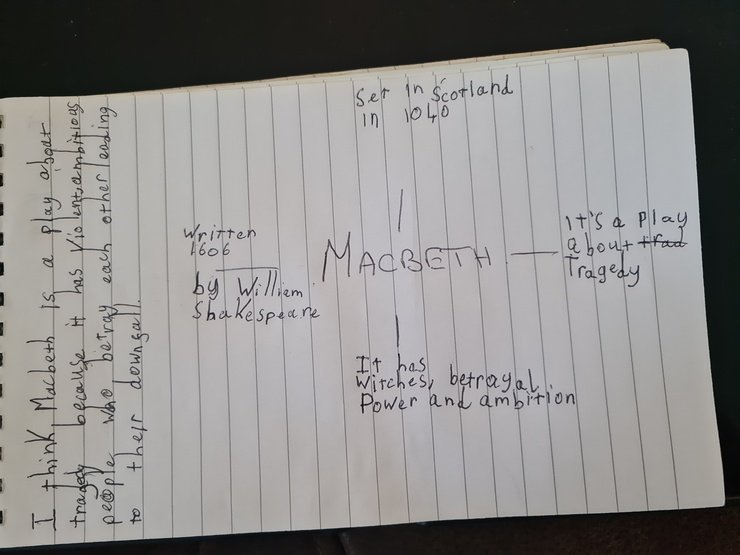 Set in Scotland
in 1040
Written
1606
by William
Shakespeare
MACBETH
it's a play
about trad
Tragedy
It has
Witches, betrayal
Power and ambition
I think Macbeth is a play about
tragedy because it has violent, ambitious
people who betray each other leading
to their downfall.